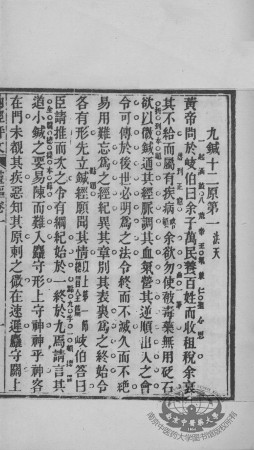 九鍼十二原第一法天
黃帝問於岐伯曰余子萬民養百姓而收租稅余哀
其不給而屬有疾病余欲勿使被毒藥無用砭石
欲以微鍼通其經脈調其血氣營其逆順出入之會
令可傳於後世必明爲之法令終而不滅久而不絕
易用難忘爲之經紀異其章別其表裏爲之終始令
各有形先立鍼經願聞其情岐伯答曰
臣請推而次之令有綱紀始於一終於九焉請言其
道小鍼之要易陳而難入麤守形上守神神乎神客
在門未覩其疾惡知其原刺之微在速遲麤守關上
內經評文 靈樞卷一
南京中医药大学图书馆版权所有